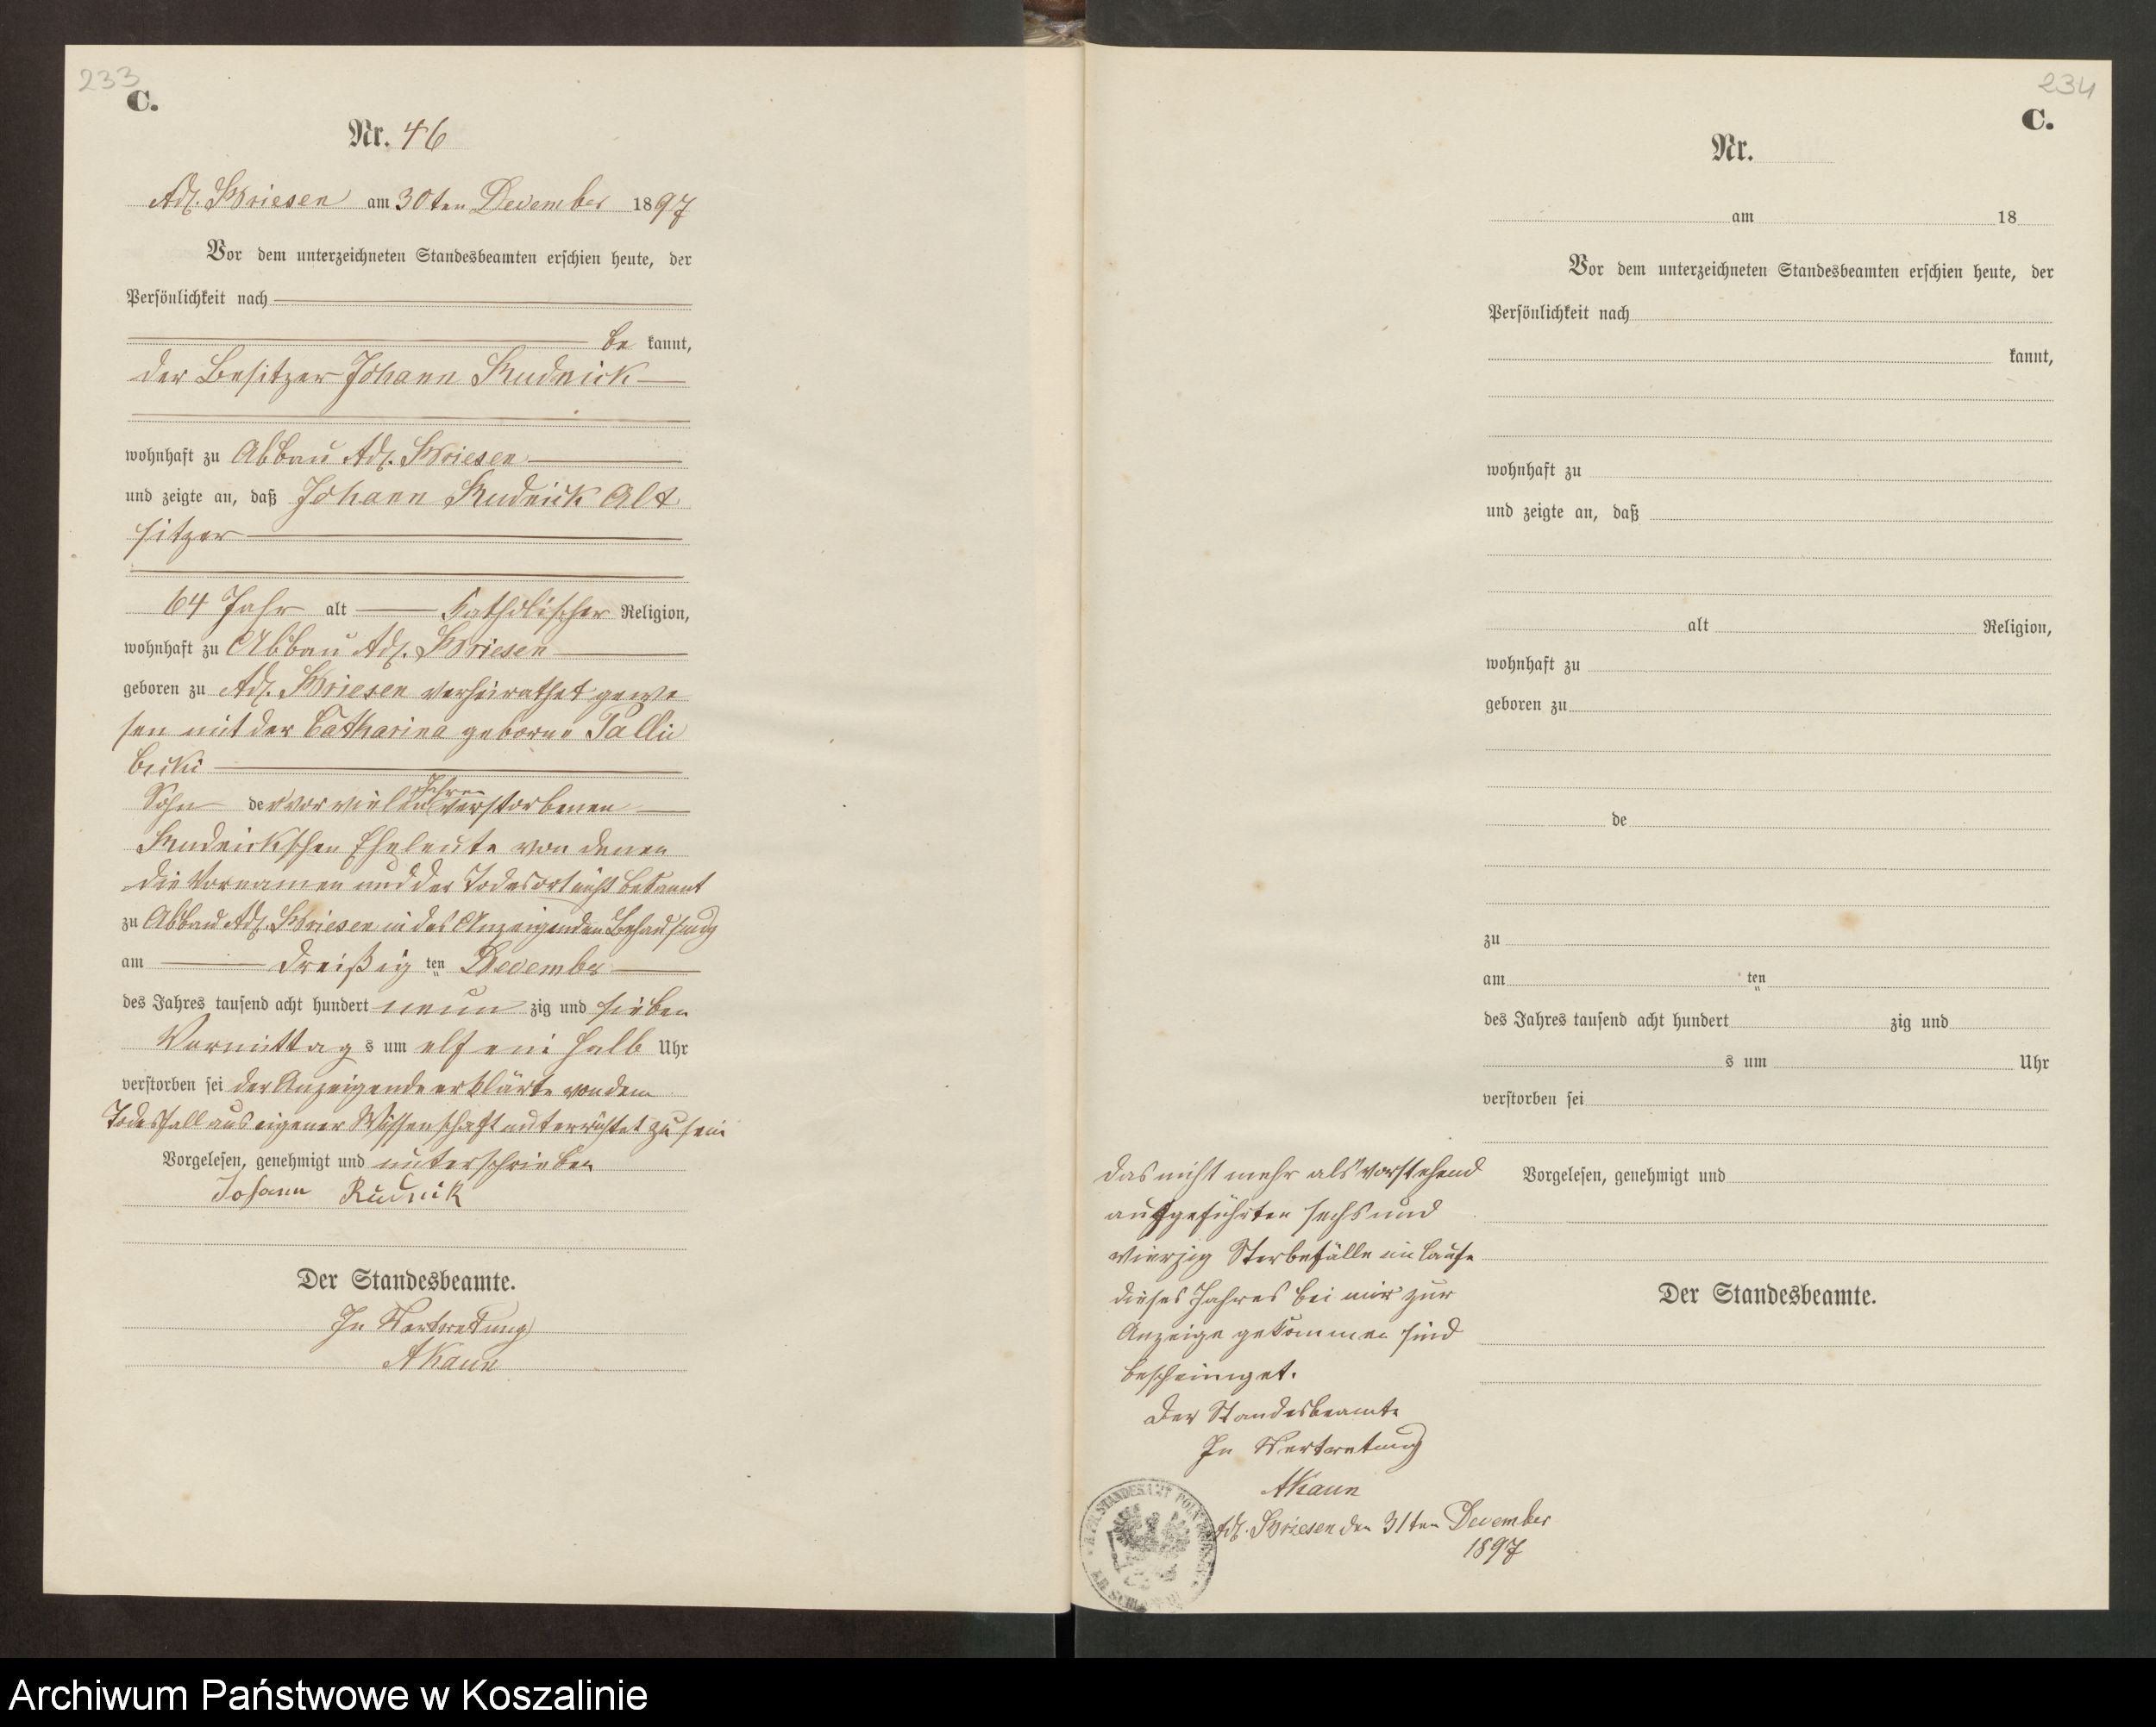 233
C.
Nr. 46
Adl. Briesen am 30ten December 1897
Vor dem unterzeichneten Standesbeamten erschien heute, der
Persönlichkeit nach
be kannt,
der Besitzer Johann Rudnick
wohnhaft zu Abbau Adl. Briesen
und zeigte an, daß Johann Rudnick Alt
sitzer
64 Jahr alt Katholischer Religion,
wohnhaft zu Abbau Adl. Briesen
geboren zu Adl. Briesen verheirathet gewe
sen mit der Catharina geborne
Jahren
Sohn der vor vielen verstorbenen
Rudnickschen Eheleute von denen
die Vornamen und der Todesort nicht bekannt
zu Abbau Adl. Briesen in des Anzeigenden Behausung
am dreißig ten December
des Jahres tausend acht hundert neun zig und sieben
Vormittag s um elf ein halb Uhr
verstorben sei der Anzeigende erklärte von dem
Todesfall aus eigener Wissenschaft unterrichtet zu sein
Vorgelesen, genehmigt und unterschrieben
Johann Rudnik
Der Standesbeamte.
In Vertretung
AKaun
234
C.
Nr.
am 18
Vor dem unterzeichneten Standesbeamten erschien heute, der
Persönlichkeit nach
kannt,
wohnhaft zu
und zeigte an, daß
alt Religion,
wohnhaft zu
geboren zu
de
zu
am ten
des Jahres tausend acht hundert zig und
s um Uhr
verstorben sei
Vorgelesen, genehmigt und
Der Standesbeamte.
das nicht mehr als vorstehend
aufgeführten sechs und
vierzig Sterbefälle im Laufe
dieses Jahres bei mir zur
Anzeige gekommen sind
bescheiniget.
Der Standesbeamte
In Vertretung
AKaun
Adl. Briesen den 31ten December
1897
Archiwum Państwowe w Koszalinie